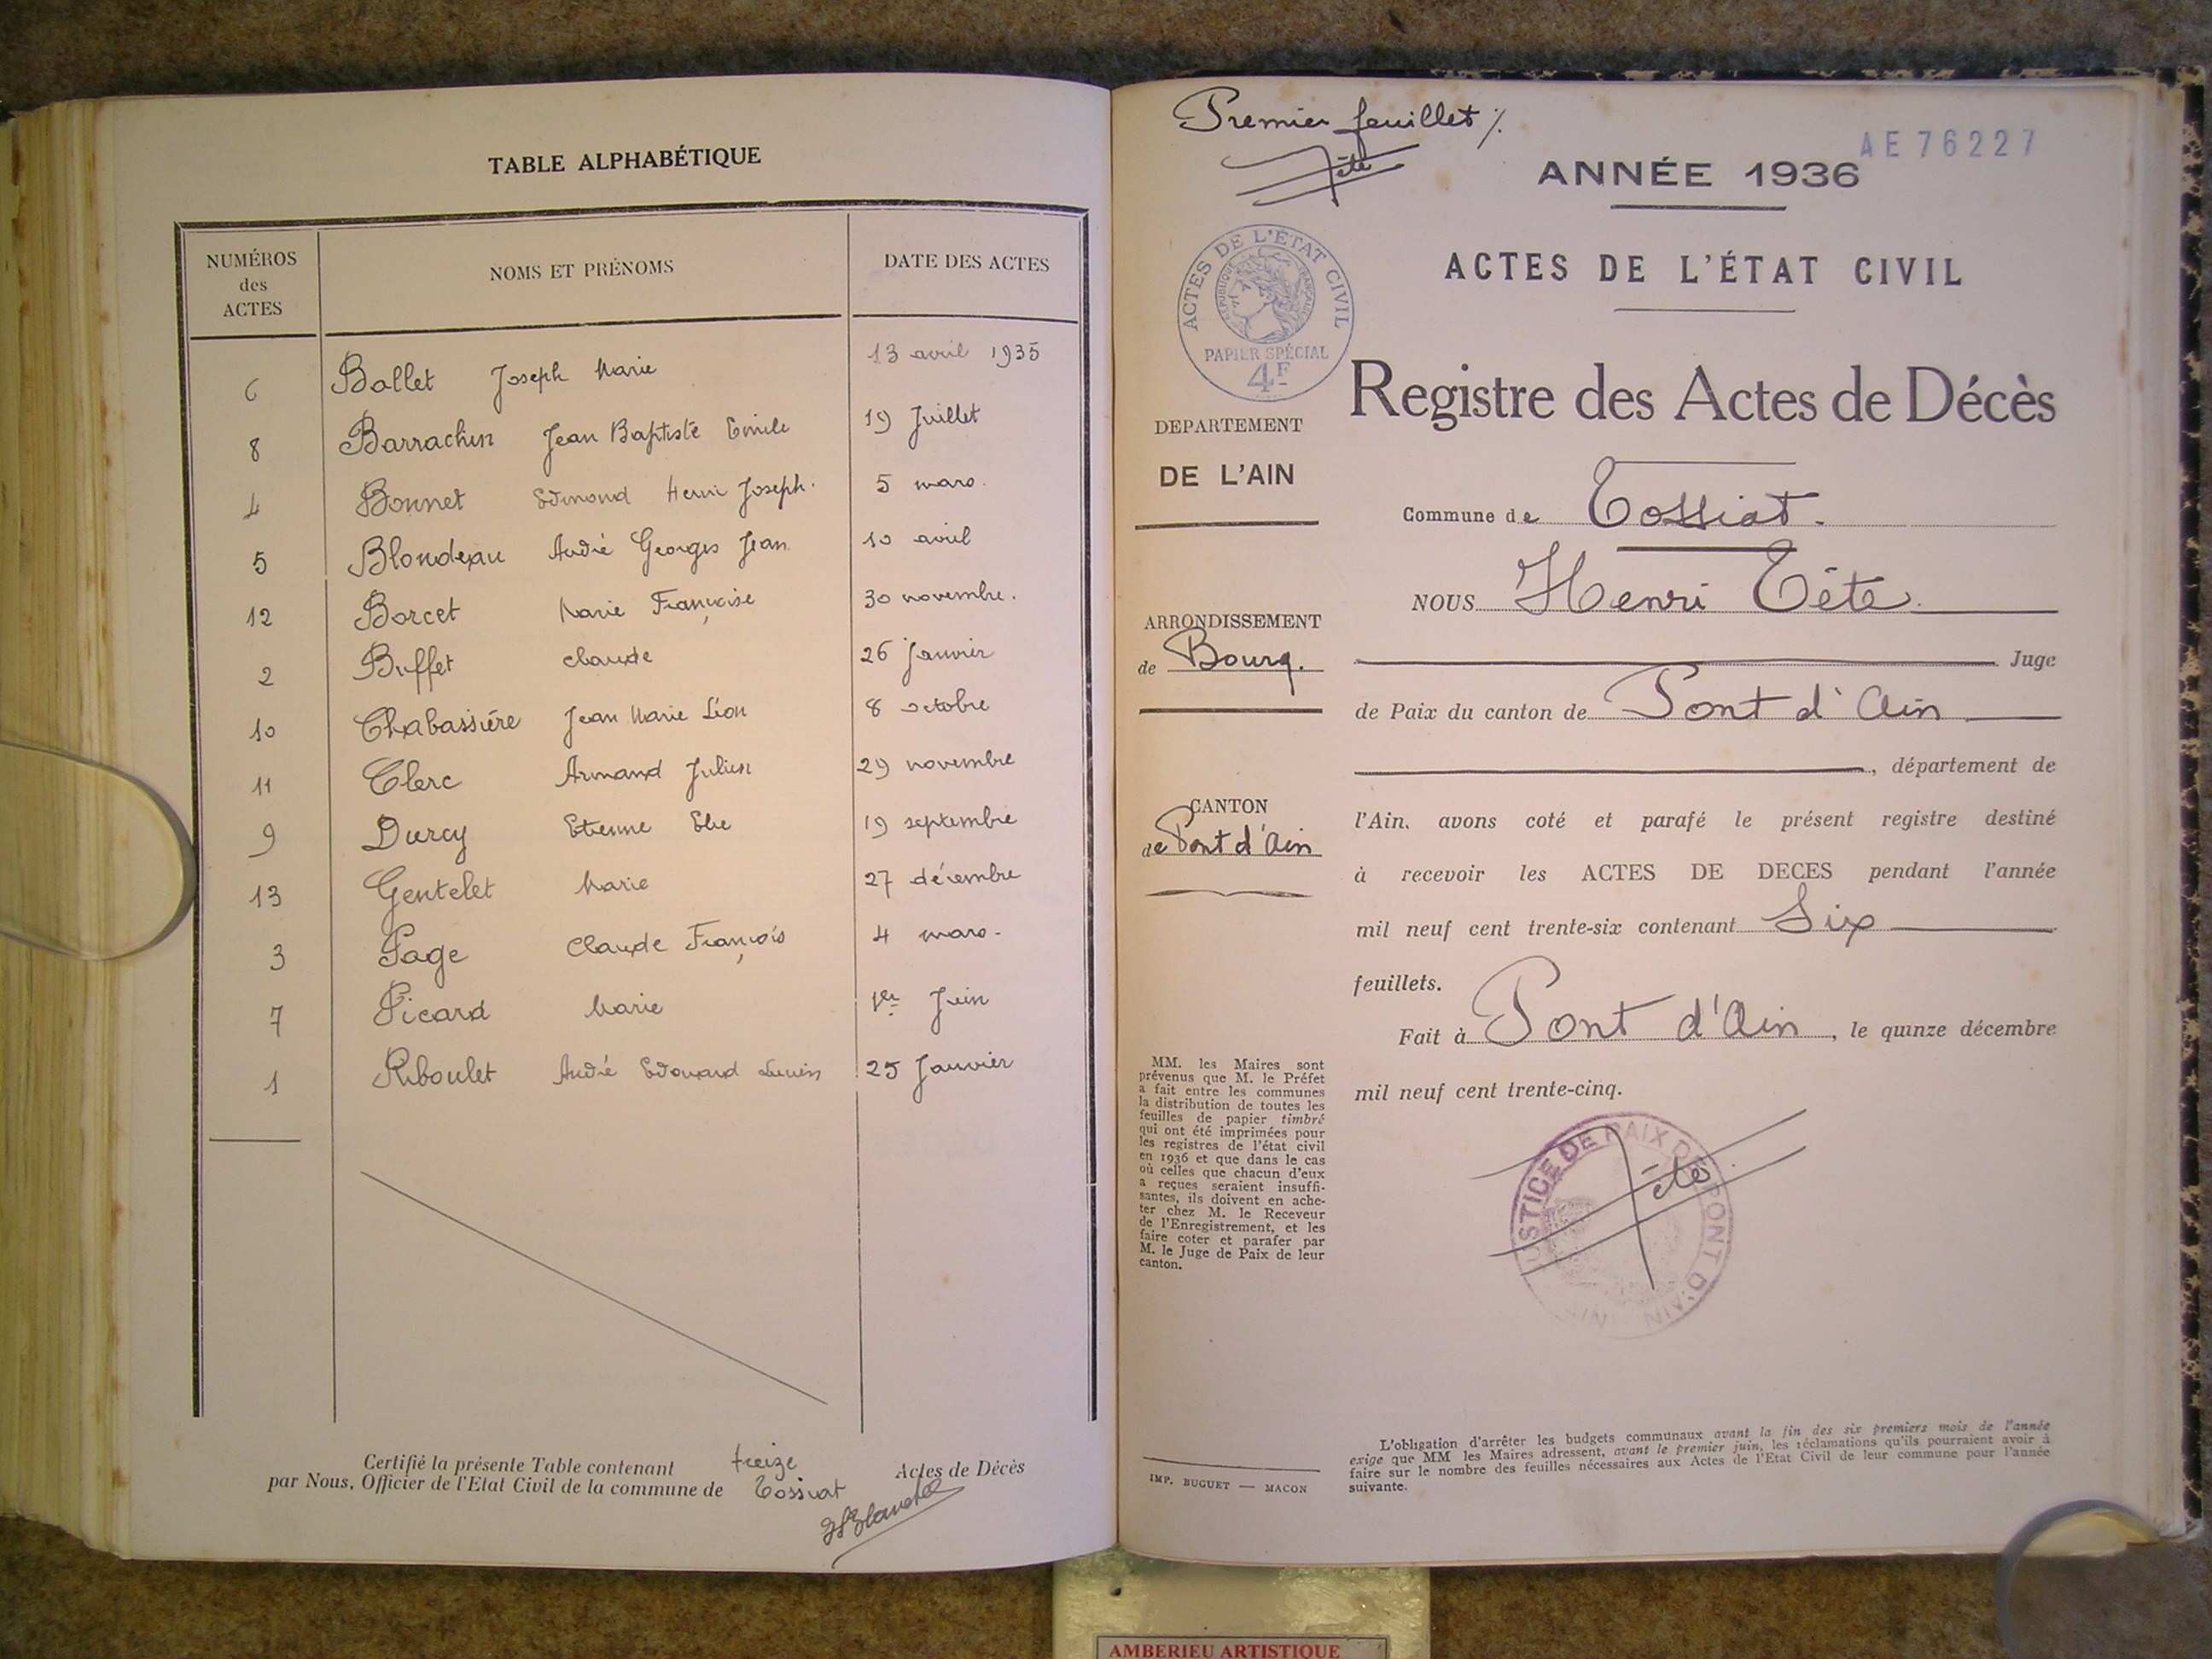 TABLE ALPHABÉTIQUE
NUMÉROS des ACTES NOMS ET PRÉNOMS DATE DES ACTES
6 Ballet Joseph Marie 13 avril 1935
8 Barrachin Jean Baptiste Emile 19 Juillet
4 Bonnet Edmond Henri Joseph. 5 mars.
5 Blondeau André Georges Jean 10 avril
12 Borcet Marie Françoise 30 novembre.
2 Buffet Claude 26 Janvier
10 Chabassière Jean Marie Léon 8 octobre
11 Clerc Armand Julien 29 novembre
9 Durcy Etienne Elie 19 septembre
13 Gentelet Marie 27 décembre
3 Page Claude François 4 mars.
7 Picard Marie 1er Juin
1 Riboulet André Edouard Lucien 25 Janvier
Certifié la présente Table contenant treize Actes de Décès
par Nous, Officier de l'Etat Civil de la commune de Tossiat
Premier feuillet %.
Tété
AE 76227
ANNÉE 1936
ACTES DE L'ÉTAT CIVIL
ACTES DE L'ETAT CIVIL
REPUBLIQUE FRANÇAISE
PAPIER SPÉCIAL
4F
Registre des Actes de Décès
DEPARTEMENT
DE L'AIN
Commune de Tossiat.
NOUS Henri Tété.
ARRONDISSEMENT
de Bourg.
Juge
de Paix du canton de Pont d'Ain
, département de
CANTON
de Pont d'Ain
l'Ain. avons coté et parafé le présent registre destiné
à recevoir les ACTES DE DECES pendant l'année
mil neuf cent trente-six contenant Six
feuillets.
Fait à Pont d'Ain, le quinze décembre
mil neuf cent trente-cinq.
MM. les Maires sont
prévenus que M. le Préfet
a fait entre les communes
la distribution de toutes les
feuilles de papier timbré
qui ont été imprimées pour
les registres de l'état civil
en 1936 et que dans le cas
où celles que chacun d'eux
a reçues seraient insuffi-
santes, ils doivent en ache-
ter chez M. le Receveur
de l'Enregistrement, et les
faire coter et parafer par
M. le Juge de Paix de leur
canton.
JUSTICE DE PAIX DE PONT D'AIN
Tété
IMP. BUGUET — MACON
L'obligation d'arrêter les budgets communaux avant la fin des six premiers mois de l'année
exige que MM les Maires adressent, avant le premier juin, les réclamations qu'ils pourraient avoir à
faire sur le nombre des feuilles nécessaires aux Actes de l'Etat Civil de leur commune pour l'année
suivante.
AMBERIEU ARTISTIQUE